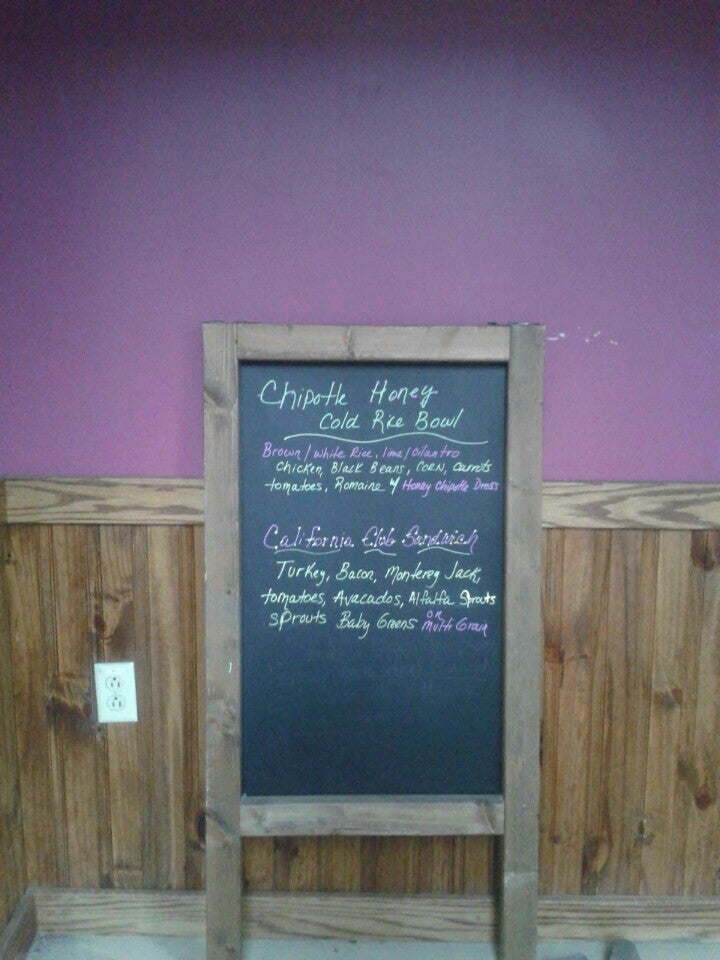 Chipotle Honey
Cold Rice Bowl
Brown / White Rice, lime / cilantro
Chicken, Black Beans, corn, carrots
tomatoes, Romaine & Honey Chipotle Dress
California Club Sandwich
Turkey, Bacon, Monterey Jack,
tomatoes, Avacados, Alfalfa Sprouts
sprouts Baby Greens on Multi Grain